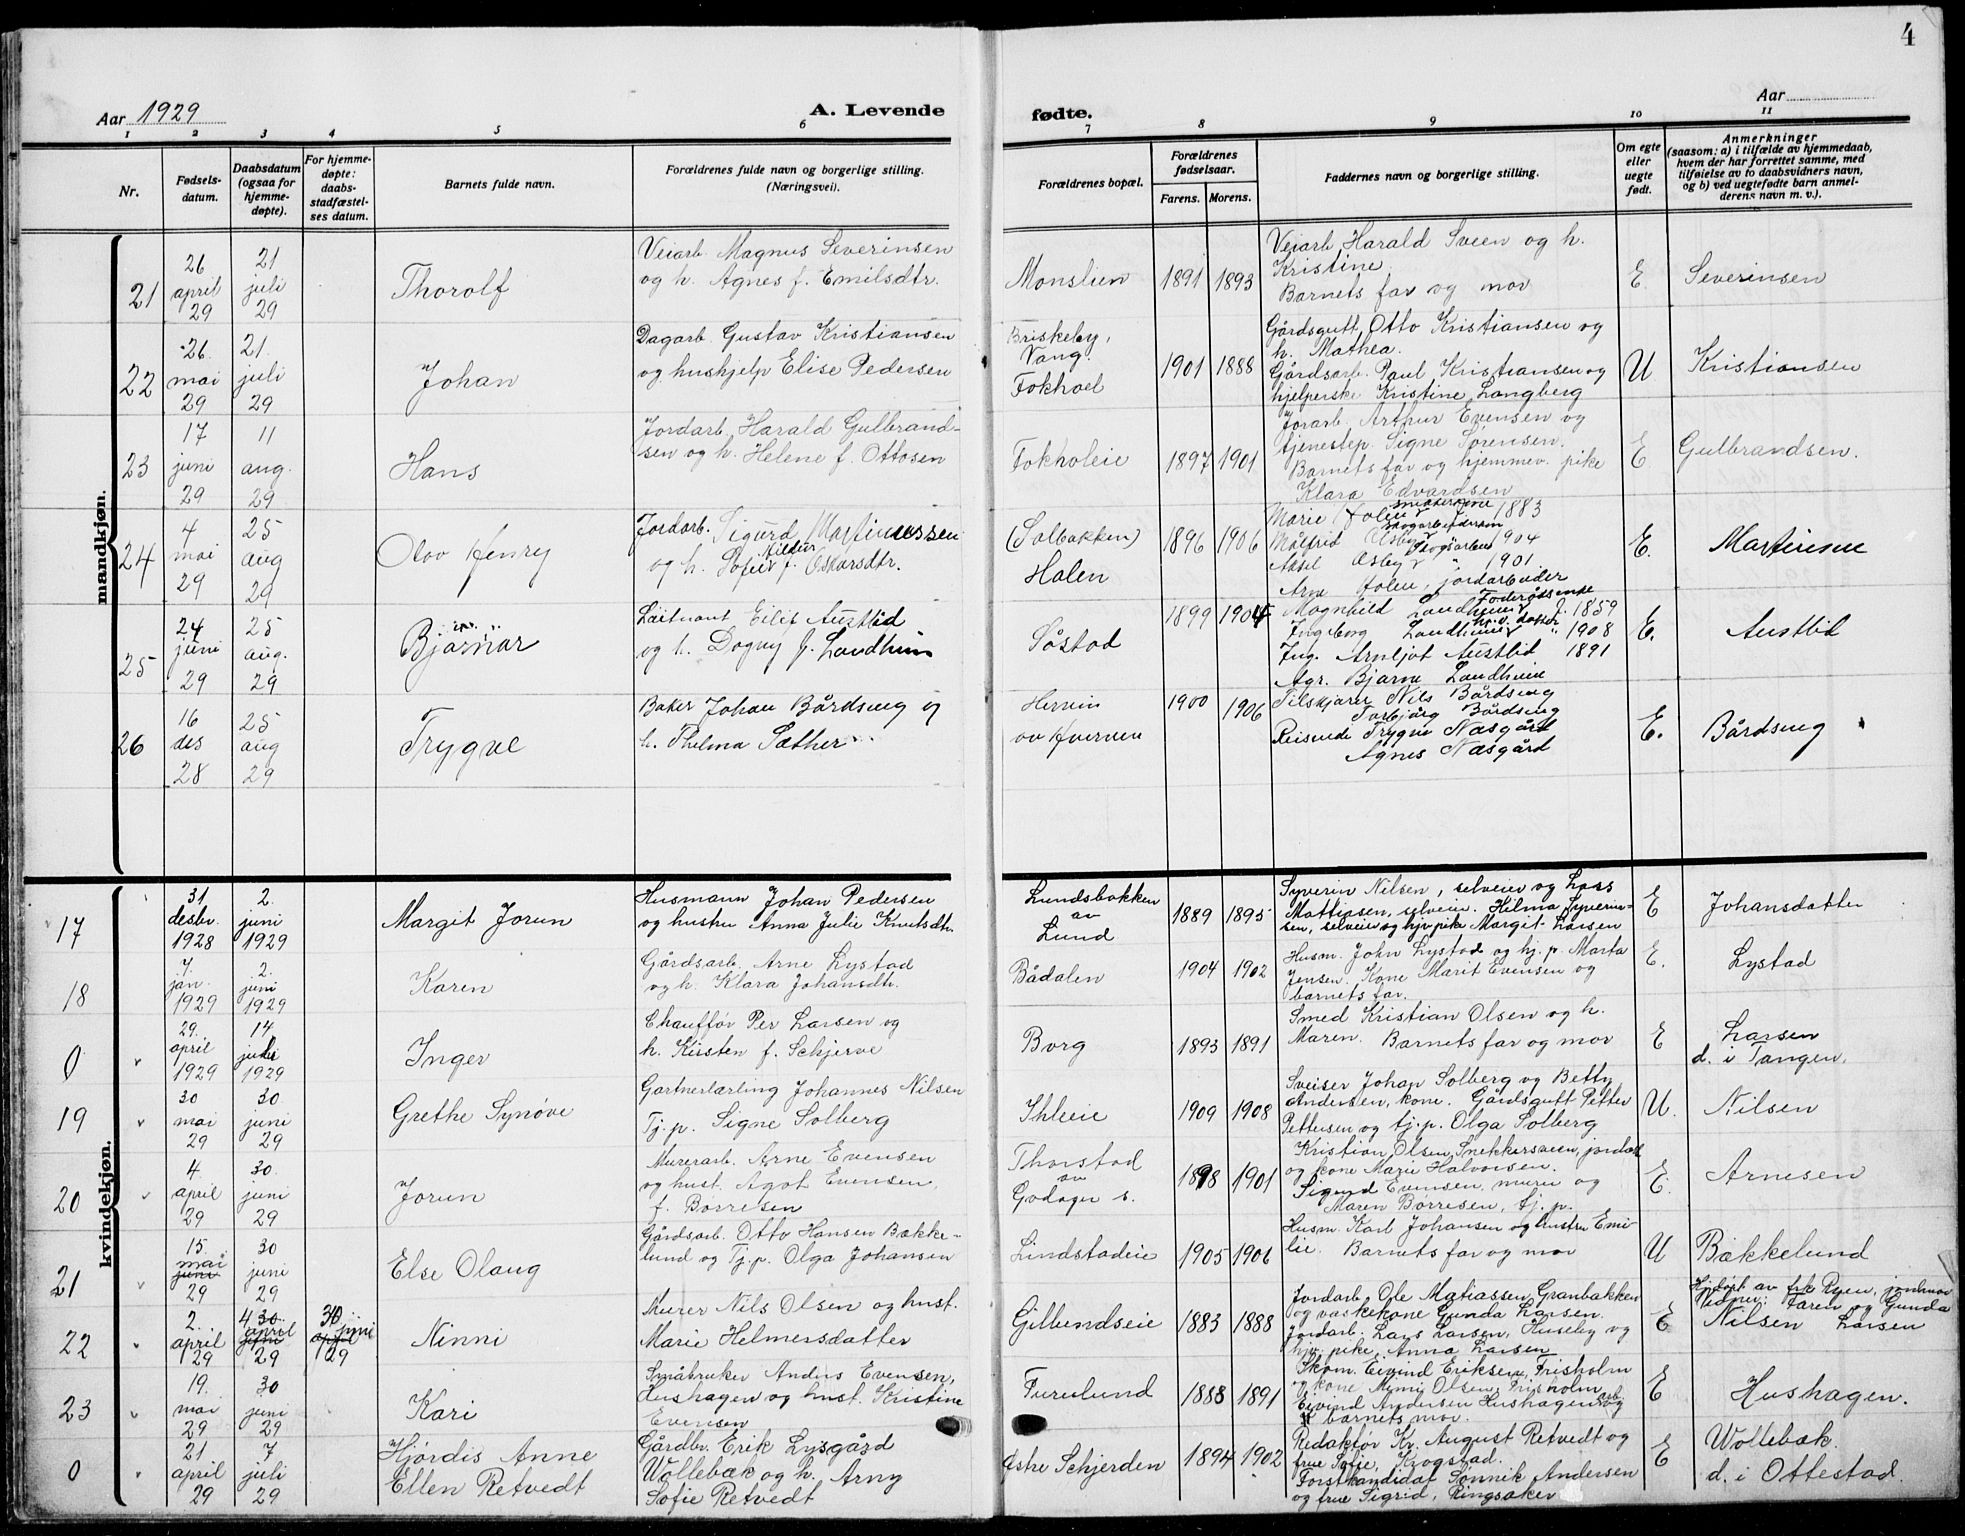 4
Aar 1929
A. Levende
fødte.
Aar
1 2 3 4 5 6 7 8 9 10 11
Nr.
Fødsels-
datum.
Daabsdatum
(ogsaa for
hjemme-
døpte).
For hjemme-
døpte:
daabs-
stadfæstel-
ses datum.
Barnets fulde navn.
Forældrenes fulde navn og borgerlige stilling.
(Næringsvei).
Forældrenes bopæl.
Forældrenes
fødselsaar.
Farens. Morens.
Faddernes navn og borgerlige stilling.
Om egte
eller
uegte
født.
Anmerkninger
(saasom: a) i tilfælde av hjemmedaab,
hvem der har forrettet samme, med
tilføielse av to daabsvidners navn,
og b) ved uegtefødte barn anmel-
derens navn m. v.).
mandkjøn.
21
26
april
29
21
juli
29
Thorolf
Veiarb. Magnus Severinsen
og h. Agnes f. Emilsdtr.
Monslien
1891 1893
Veiarb Harald Sveen og h.
Kristine
Barnets far og mor
E
Severinsen
22
26
mai
29
21.
juli
29
Johan
Dagarb. Gustav Kristiansen
og hushjelp Elise Pedersen
Briskeby,
Vang.
Fokhoel
1901 1888
Gårdsgutt Otto Kristiansen og
h. Mathea.
Gårdsarb. Paul Kristiansen og
hjelperske Kristine Langberg
U
Kristiansen
23
17
juni
29
11
aug.
29
Hans
Jordarb. Harald Gulbrand-
sen og h. Helene f. Ottosen
Fokholeie
1897 1901
Jorarb. Arthur Evensen og
tjenestep. Signe Sørensen.
Barnets far og hjemmev. pike
Klara Edvardsen
E
Gulbrandsen.
24
4
mai
29
25
aug
29
Olov Henry
Jordarb. Sigurd Martinussen
og h. Sofie Kildur f. Oskarsdtr.
(Solbakken)
Holen
1896 1906
Marie Holen 1883
Målfrid Osby 1904
Aksel Osby 1901
Arne Holen, jordarbeider
E.
Martinsen
25
24
juni
29
25
aug.
29
Bjørnar
Løitnant Eilif Austlid
og h. Dagny f. Landheim
Såstad
1899 1904
Magnhild Landheim f. 1859
Ingeborg Landheim " 1908
Ing. Arnljot Austlid 1891
Agr. Bjarne Landheim
E.
Austlid
26
16
des
28
25
aug
29
Trygve
Baker Johan Bårdseng og
h. Thelma Sæther
Hernin
av Kvernen
1900 1906
Tilskjærer Nils Bårdseng
Torbjørg Bårdseng
Reisende Trygve Næsgård
Agnes Næsgård
E.
Bårdseng
kvindekjøn.
17
31
desbr.
1928
2.
juni
1929
Margit Jorun
Husmann Johan Pedersen
og hustru Anna Julie Knutsdtr.
Lundsbakken
av
Lund
1889 1895
Syverin Nilsen, selveier og Lars
Mattiasen, selveier. Hilma Syverin-
sen, selveier og hjv. pike Margit Larsen
E
Johansdatter
18
7.
jan.
1929
2.
juni
1929
Karen
Gårdsarb. Arne Lystad
og h. Klara Johansdtr.
Bådalen
1904 1902
Husm. John Lystad og hj. p. Marta
Jensen. Kone Marit Evensen og
barnets far.
E.
Lystad
0
29.
april
1929
14
juli
1929
Inger
Chauffør Per Larsen og
h. Kirsten f. Schjerve
Borg
1893 1891
Smed Kristian Olsen og h.
Maren. Barnets far og mor
E
Larsen
d. i Tangen.
19
30
mai
29
30.
juni
29
Grethe Synøve
Gartnerlærling Johannes Nilsen
Tj. p. Signe Solberg
Ihleie
1909 1908
Sveiser Johan Solberg og Betty
Andersen, kone. Gårdsgutt Petter
Pettersen og tj. p. Olga Solberg
U.
Nilsen
20
4.
april
29
30.
juni
29
Jorun
Murerarb. Arne Evensen
og hust. Agot Evensen,
f. Børresen
Thorstad
av
Godager s.
1898 1901
Kristian Olsen, Snekkersveen, jordarb
og kone Marie Halvorsen.
Sigurd Evensen, murer og
Maren Børresen, tj. p.
E.
Arnesen
21
15.
mai
juni
29
30
juni
29
Else Olaug
Gårdsarb. Otto Hansen Bække-
lund og Tj. p. Olga Johansen
Lindstadeie
1905 1906
Husm. Karl Johansen og hustru Emi-
lie. Barnets far og mor
U
Bækkelund
22
2.
april
29
4 30.
april
juni
29
30
juni
april
29
Ninni
Murer Nils Olsen og hust.
Marie Helmersdatter
Gillundseie
1883 1888
Jordarb. Ole Matiassen Granbakken
og vaskekone Gunda Larsen.
Jordarb. Lars Larsen, Huseby og
hjv. pike Anna Larsen
E
Hjdøpt av frk Ryen, jordmor
Vidner: Faren og Gunda
Nilsen Larsen
23
19.
mai
29
30
juni
29
Kari
Småbruker Anders Evensen,
Hushagen og hust. Kristine
Evensen
Furulund
1888 1891
Skom. Eivind Eriksen, Frisholm
og kone Mimi Olsen, Frisholm
Eivind Andersen Hushagen og
barnets mor.
E
Hushagen.
0
21
april
29
7
juli
29
Hjørdis Anne
Ellen Retvedt
Gårdbr. Erik Lysgård
Wollebæk og h. Arny
Sofie Retvedt
Østre Schjerden
1894 1902
Redaktør Kr. August Retvedt og
frue Sofie, Krogstad.
Forstkandidat Sønnik Andersen
og frue Sigrid, Ringsaker
E
Wollebæk
d. i Ottestad.